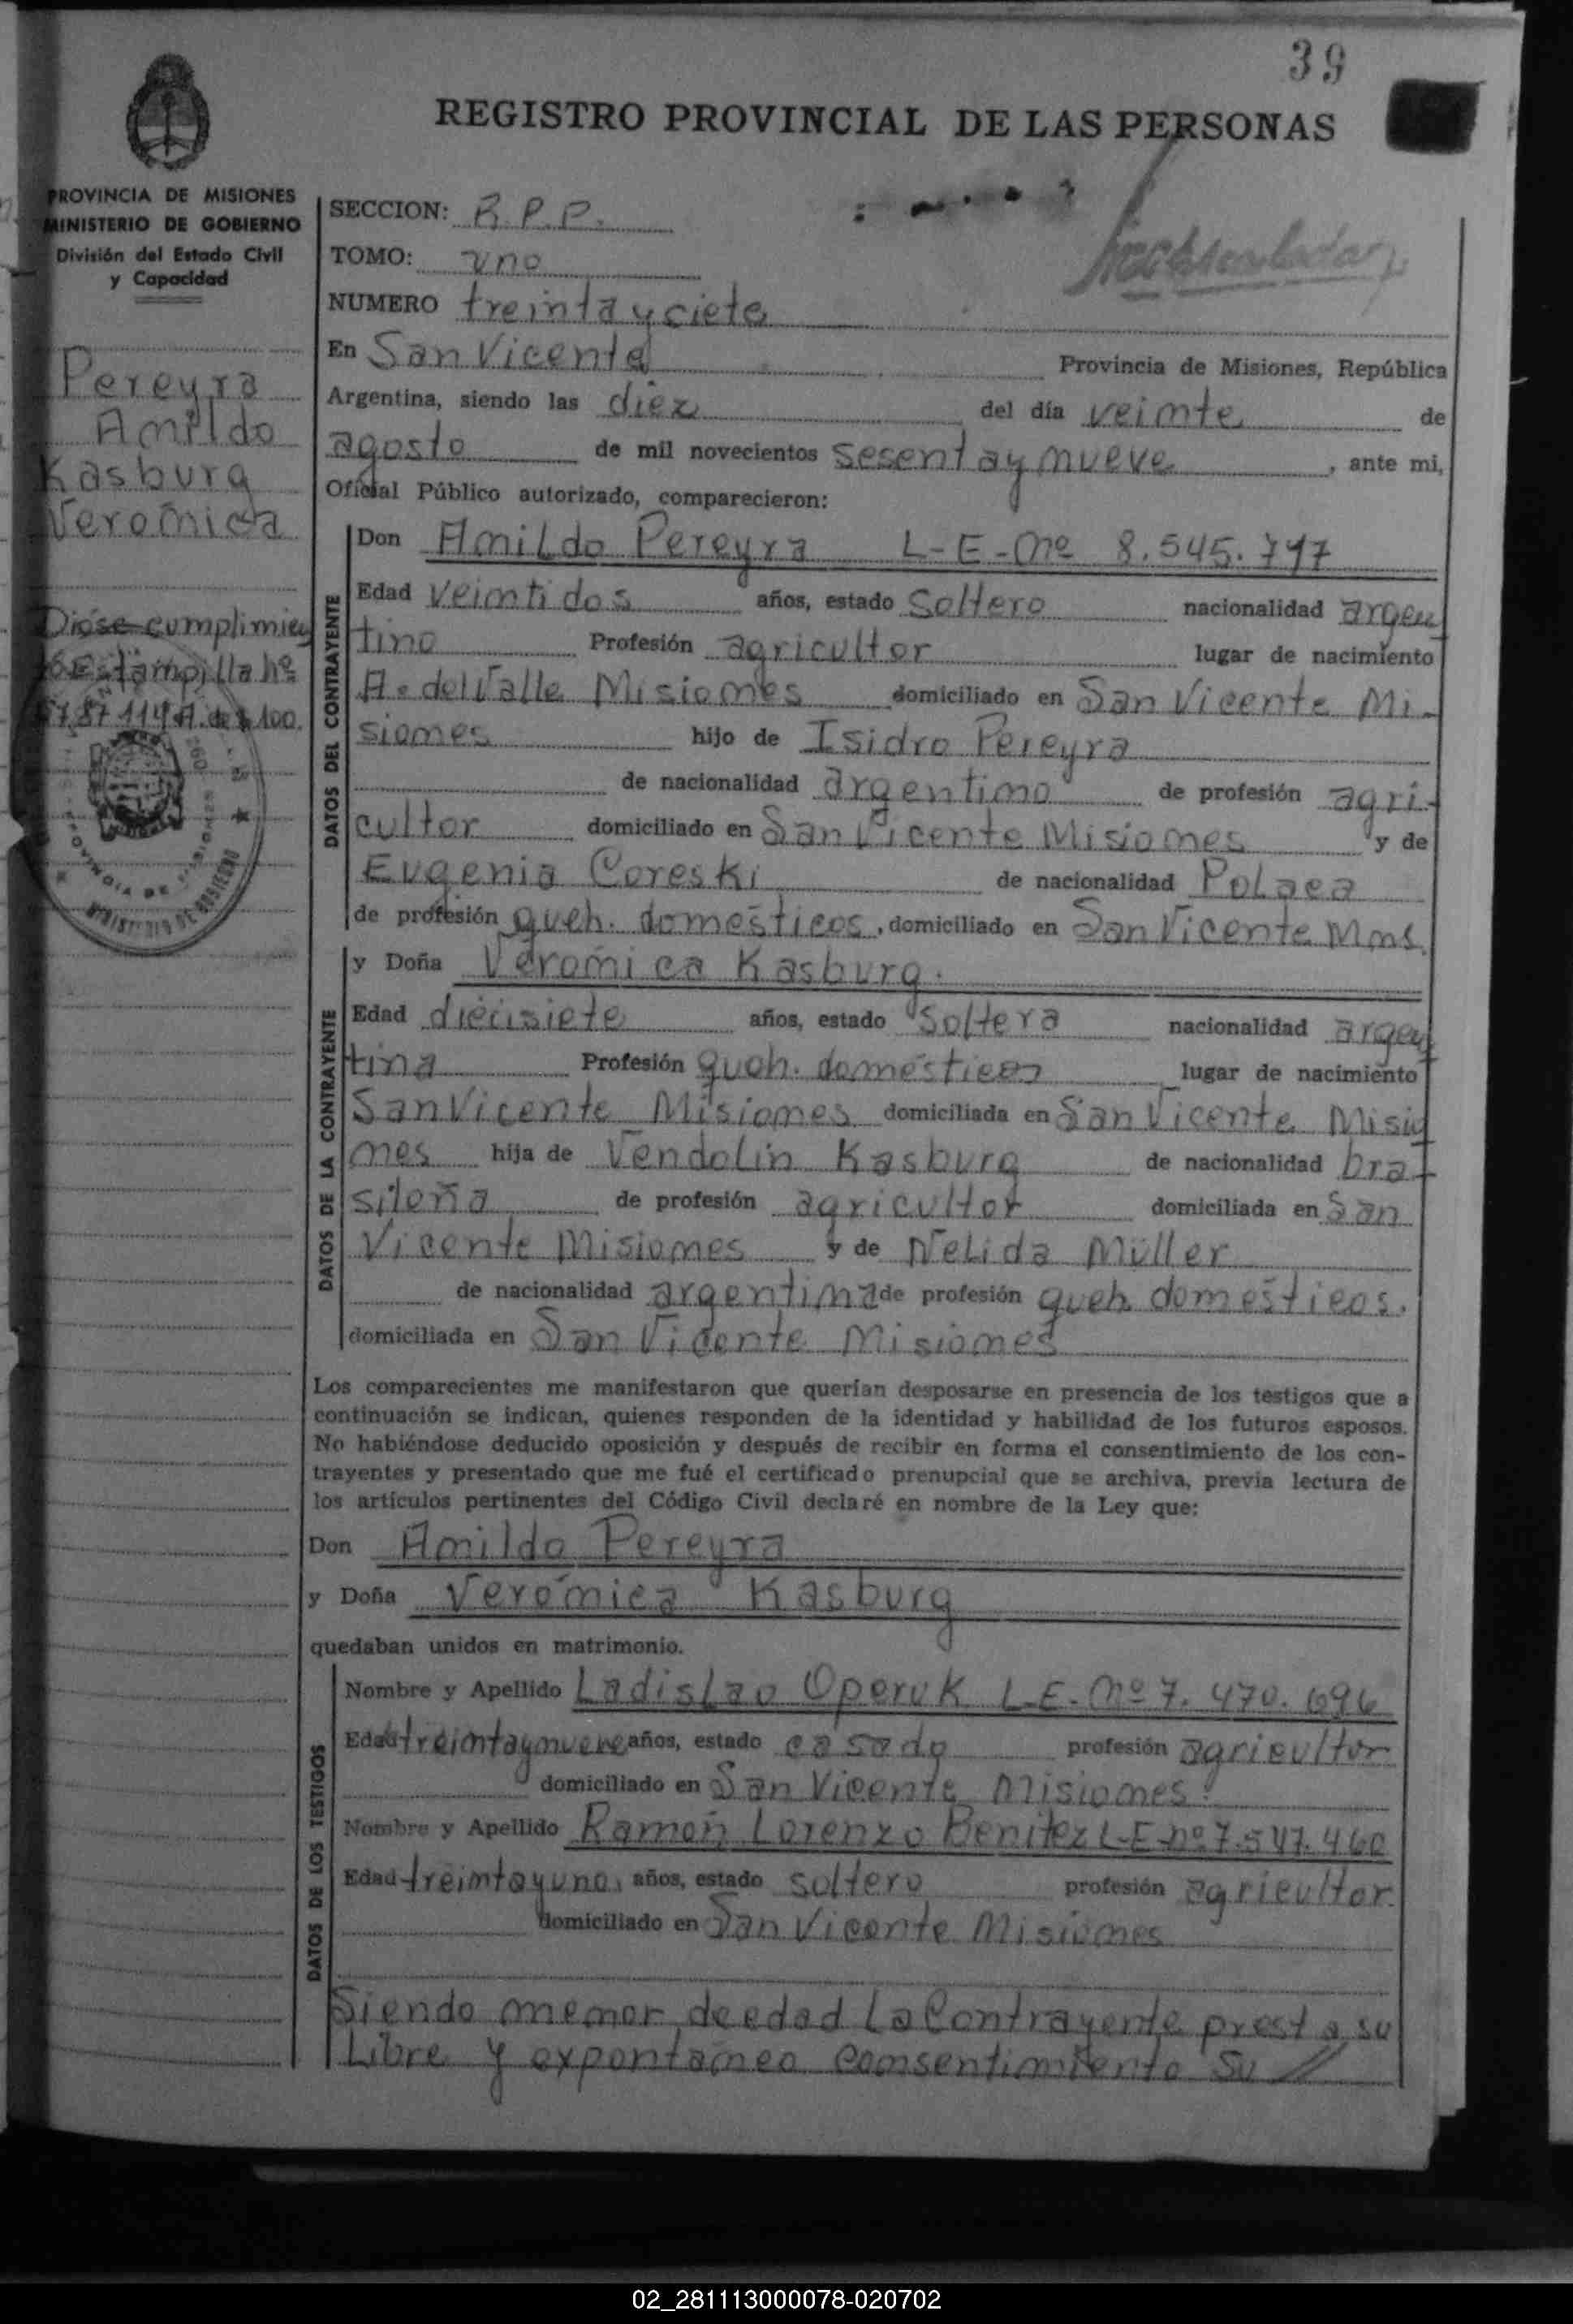 39
REGISTRO PROVINCIAL DE LAS PERSONAS
PROVINCIA DE MISIONES
MINISTERIO DE GOBIERNO
División del Estado Civil
y Capacidad
Pereyra
Anildo
Kasburg
Verónica
Dióse cumplimien
to Estampilla nº
de $ 100.
PROVINCIA DE MISIONES
MINISTERIO DE GOBIERNO
SECCION: R.P.P.
TOMO: uno
NUMERO treinta y ciete
En San Vicente Provincia de Misiones, República
Argentina, siendo las diez del día veinte de
agosto de mil novecientos sesenta y nueve, ante mi,
Oficial Público autorizado, comparecieron:
DATOS DEL CONTRAYENTE
Don Anildo Pereyra L-E-Nº 8.545.797
Edad veintidos años, estado soltero nacionalidad argen
tino Profesión agricultor lugar de nacimiento
A. del Valle Misiones domiciliado en San Vicente Mi-
siones hijo de Isidro Pereyra
de nacionalidad argentino de profesión agri-
cultor domiciliado en San Vicente Misiones y de
Eugenia Coreski de nacionalidad Polaca
de profesión queh. domésticos, domiciliado en San Vicente Mnes.
DATOS DE LA CONTRAYENTE
y Doña Verónica Kasburg.
Edad diecisiete años, estado soltera nacionalidad argen
tina Profesión queh. domésticos lugar de nacimiento
San Vicente Misiones domiciliada en San Vicente Misio
nes hija de Vendolin Kasburg de nacionalidad bra-
sileña de profesión agricultor domiciliada en San
Vicente Misiones y de Nelida Müller
de nacionalidad argentina de profesión queh domésticos.
domiciliada en San Vicente Misiones
Los comparecientes me manifestaron que querían desposarse en presencia de los testigos que a
continuación se indican, quienes responden de la identidad y habilidad de los futuros esposos.
No habiéndose deducido oposición y después de recibir en forma el consentimiento de los con-
trayentes y presentado que me fué el certificado prenupcial que se archiva, previa lectura de
los artículos pertinentes del Código Civil declaré en nombre de la Ley que:
Don Anildo Pereyra
y Doña Verónica Kasburg
quedaban unidos en matrimonio.
DATOS DE LOS TESTIGOS
Nombre y Apellido Ladislao Operuk L-E-Nº 7.470.696
Edad treinta y nueve años, estado casado profesión agricultor
domiciliado en San Vicente Misiones.
Nombre y Apellido Ramón Lorenzo Benitez L-E-nº 7.547.460
Edad treinta y uno, años, estado soltero profesión agricultor
domiciliado en San Vicente Misiones
Siendo menor de edad la Contrayente presta su
Libre y expontaneo consentimiento su //
02_281113000078-020702